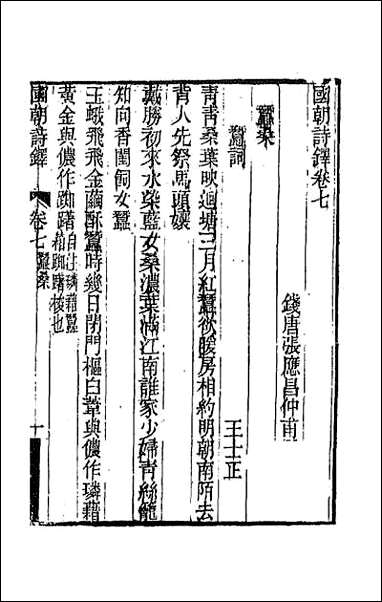 國朝詩鐸卷七
錢唐張應昌仲甫
蠶桑
蠶詞
王士正
靑靑桑葉映迴塘三月紅蠶欲暖房相約明朝南陌去
背人先祭馬頭孃
戴勝初來水染藍女桑濃葉滿江南誰家少婦靑絲籠
知向香閨飼女蠶
玉蛾飛飛金繭酥蠶時幾日閉門樞白葦與儂作璘藉
黃金與儂作踟躇自注璘藉蠶
藉踟躇核也
國朝詩鐸
卷七蠶桑
一